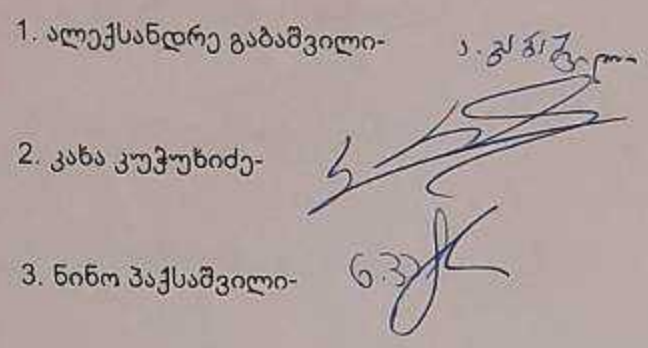 1. ალექსანდრე გაბაშვილი- ა. გაბაშვილი
2. კახა კუჭუხიძე-
3. ნინო პაქსაშვილი- ნ.პ